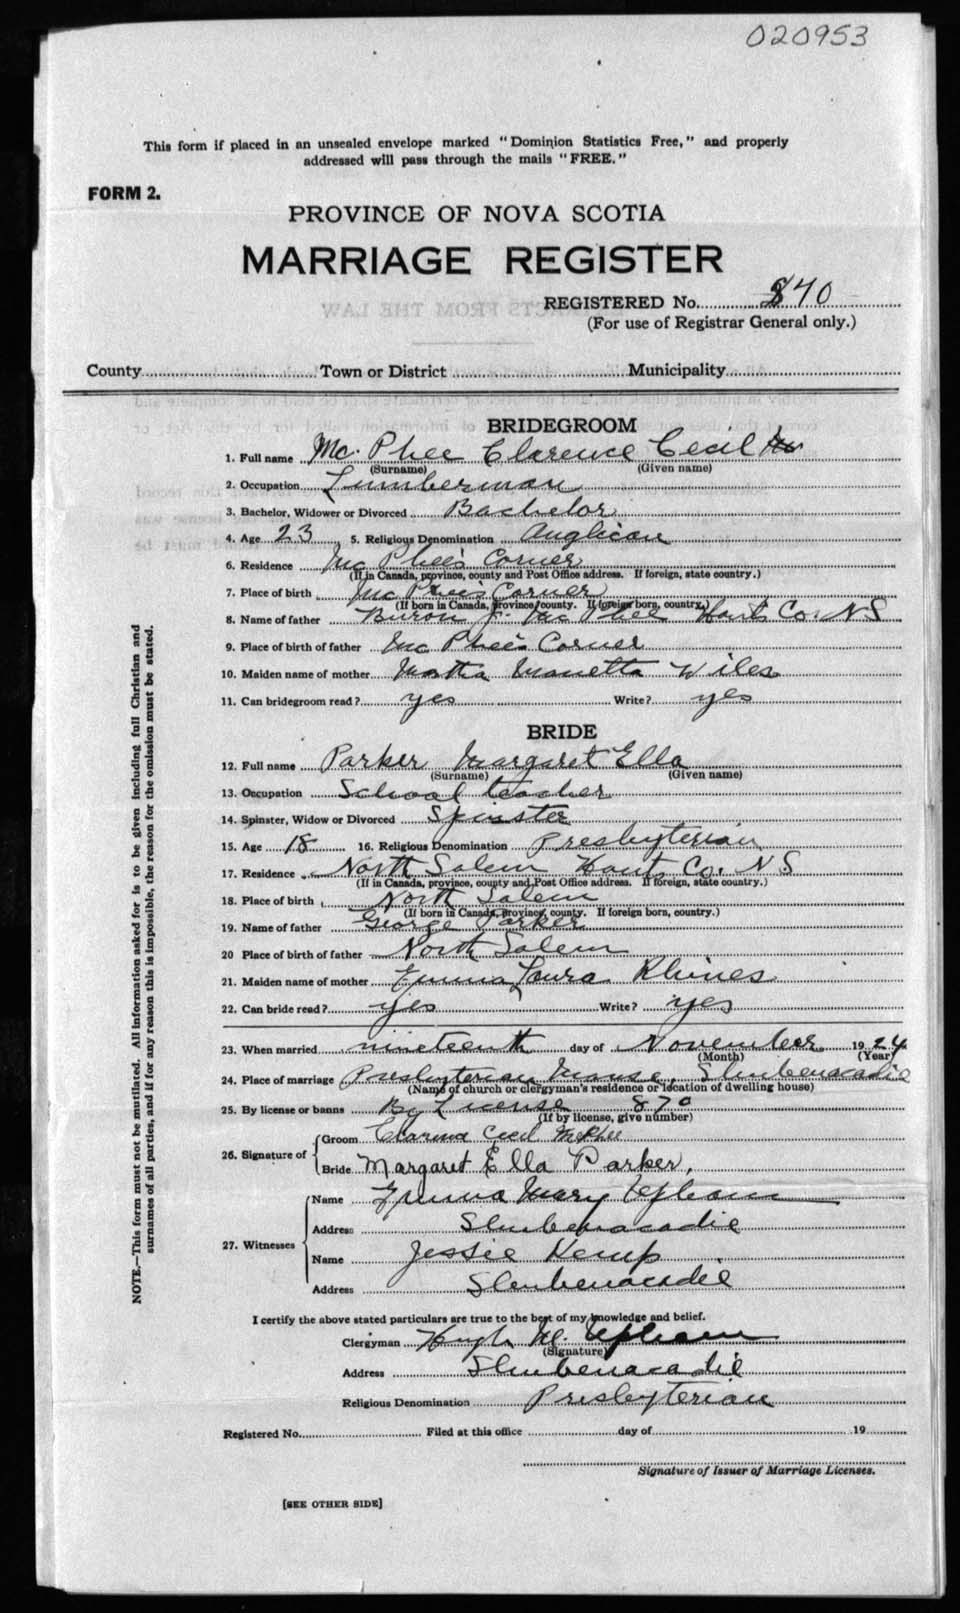 020953
This form if placed in an unsealed envelope marked "Dominion Statistics Free," and properly
addressed will pass through the mails "FREE."
FORM 2.
PROVINCE OF NOVA SCOTIA
MARRIAGE REGISTER
REGISTERED No. 840
(For use of Registrar General only.)
County Town or District Municipality
BRIDEGROOM
1. Full name Mc. Phee Clarence Cecil
(Surname) (Given name)
2. Occupation Lumberman
3. Bachelor, Widower or Divorced Bachelor
4. Age 23 5. Religious Denomination Anglican
6. Residence Mc Phee's Corner
(If in Canada, province, county and Post Office address. If foreign, state country.)
7. Place of birth Mc Phee's Corner
(If born in Canada, province, county. If foreign born, country.)
8. Name of father Buron J. Mc Phee Hants Co. N S
9. Place of birth of father Mc Phee's Corner
10. Maiden name of mother Martha Manetta Wiles
11. Can bridegroom read? yes Write? yes
BRIDE
12. Full name Parker Margaret Ella
(Surname) (Given name)
13. Occupation School teacher
14. Spinster, Widow or Divorced Spinster
15. Age 18 16. Religious Denomination Presbyterian
17. Residence North Salem Hants Co. N S
(If in Canada, province, county and Post Office address. If foreign, state country.)
18. Place of birth North Salem
(If born in Canada, province, county. If foreign born, country.)
19. Name of father George Parker
20 Place of birth of father North Salem
21. Maiden name of mother Emma Laura Rhines
22. Can bride read? yes Write? yes
23. When married nineteenth day of November 1924
(Month) (Year)
24. Place of marriage Presbyterian Manse, Shubenacadie
(Name of church or clergyman's residence or location of dwelling house)
25. By license or banns By License 870
(If by license, give number)
26. Signature of
Groom Clarence Cecil McPhee
Bride Margaret Ella Parker,
27. Witnesses
Name Emma Mary Upham
Address Shubenacadie
Name Jessie Kemp
Address Shubenacadie
I certify the above stated particulars are true to the best of my knowledge and belief.
Clergyman Hugh M. Upham
(Signature)
Address Shubenacadie
Religious Denomination Presbyterian
Registered No. Filed at this office day of 19
Signature of Issuer of Marriage Licenses.
[SEE OTHER SIDE]
NOTE.—This form must not be mutilated. All information asked for is to be given including full Christian and
surnames of all parties, and if for any reason this is impossible, the reason for the omission must be stated.